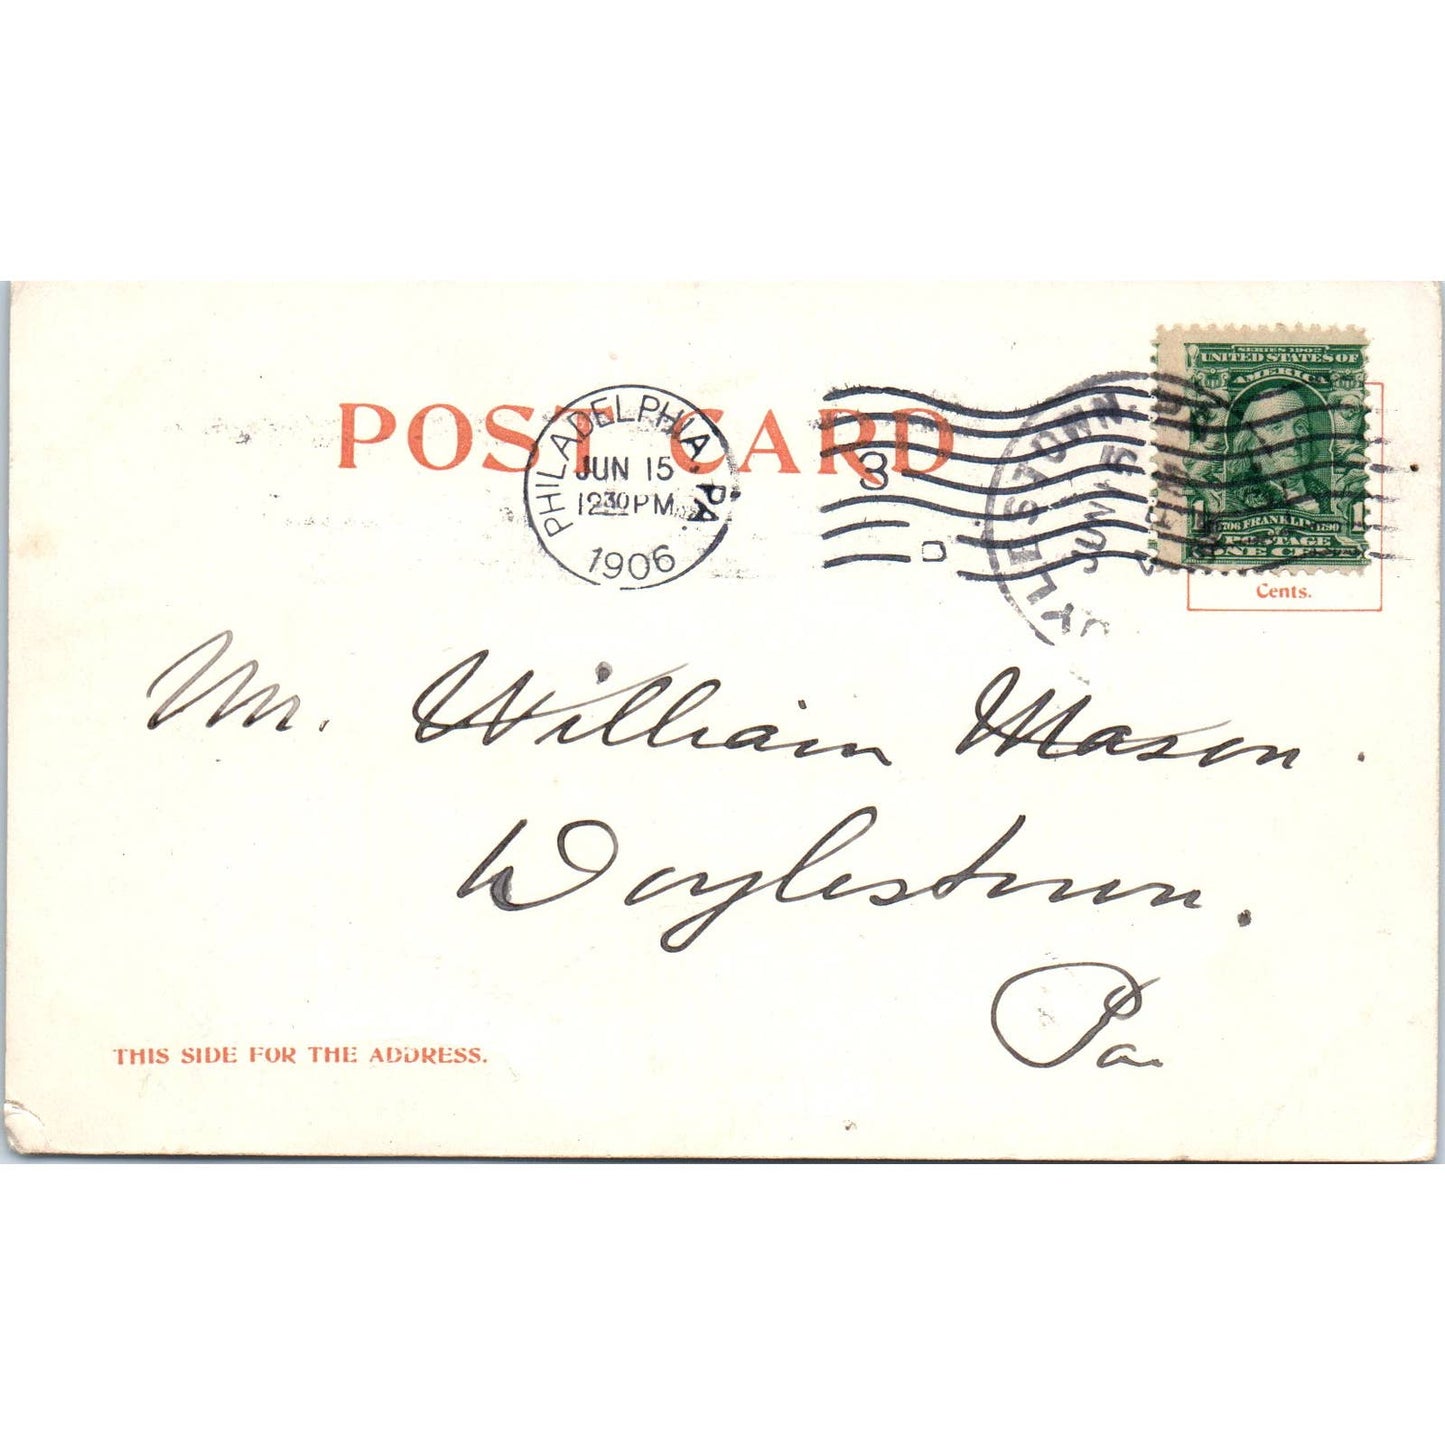 POST CARD
PHILADELPHIA. PA.
JUN 15
12 30 PM
1906
3
D
SERIES 1902
UNITED STATES OF
AMERICA
1 1706 FRANKLIN 1790 1
POSTAGE
ONE CENT
Cents.
JUN 15
Mr. William Mason.
Doylestown.
Pa
THIS SIDE FOR THE ADDRESS.